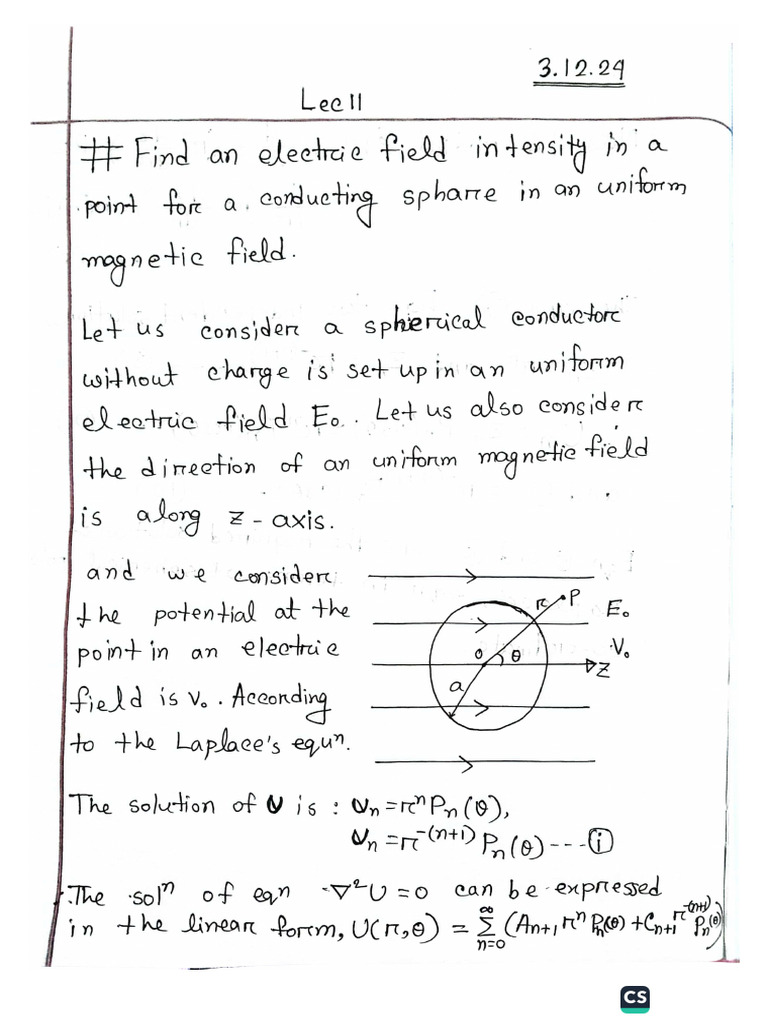 3.12.24
Lec 11
# Find an electric field intensity in a
point for a conducting spharre in an uniform
magnetic field.
Let us consider a spherical conductor
without charge is set up in an uniform
electric field E₀. Let us also consider
the direction of an uniform magnetic field
is along z-axis.
and we consider
the potential at the
point in an electric
field is V₀. According
to the Laplace's equⁿ.
r P E₀
V₀
0 θ Z
a
The solution of U is : Uₙ = rⁿPₙ(θ),
Uₙ = r⁻⁽ⁿ⁺¹⁾ Pₙ(θ) --- (i)
The solⁿ of eqn ∇²U = 0 can be expressed
in the linear form, U(r,θ) = ∑ₙ₌₀^∞ (Aₙ₊₁ rⁿ Pₙ(θ) + Cₙ₊₁ r⁻⁽ⁿ⁺¹⁾ Pₙ(θ))
CS